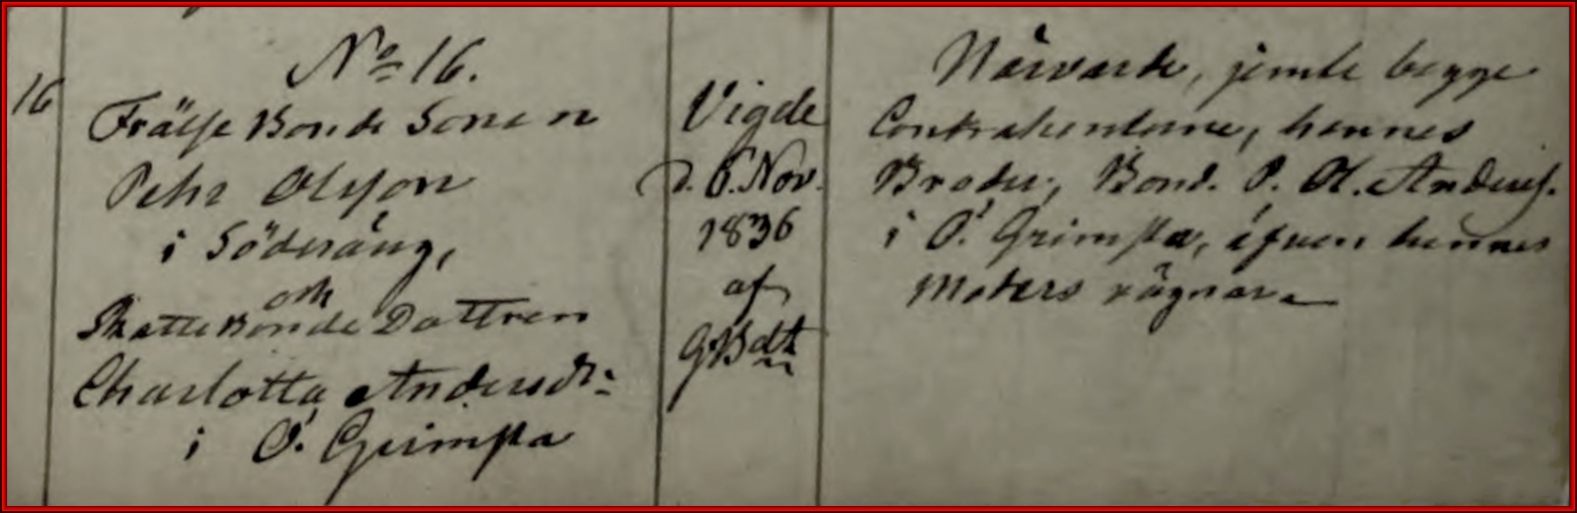 16
No 16.
Frälse Bonde Sonen
Pehr Olsson
i Söderäng,
och
Skatte Bonde Dottren
Charlotta Andersdr:
i Ö. Grimsta
Vigde
d. 6. Nov.
1836
af
Närvarde, jemte begge
Contrahenterne, hennes
Broder, Bond. P. O. Anderss.
i Ö. Grimsta, äfven hennes
Moders vägnar